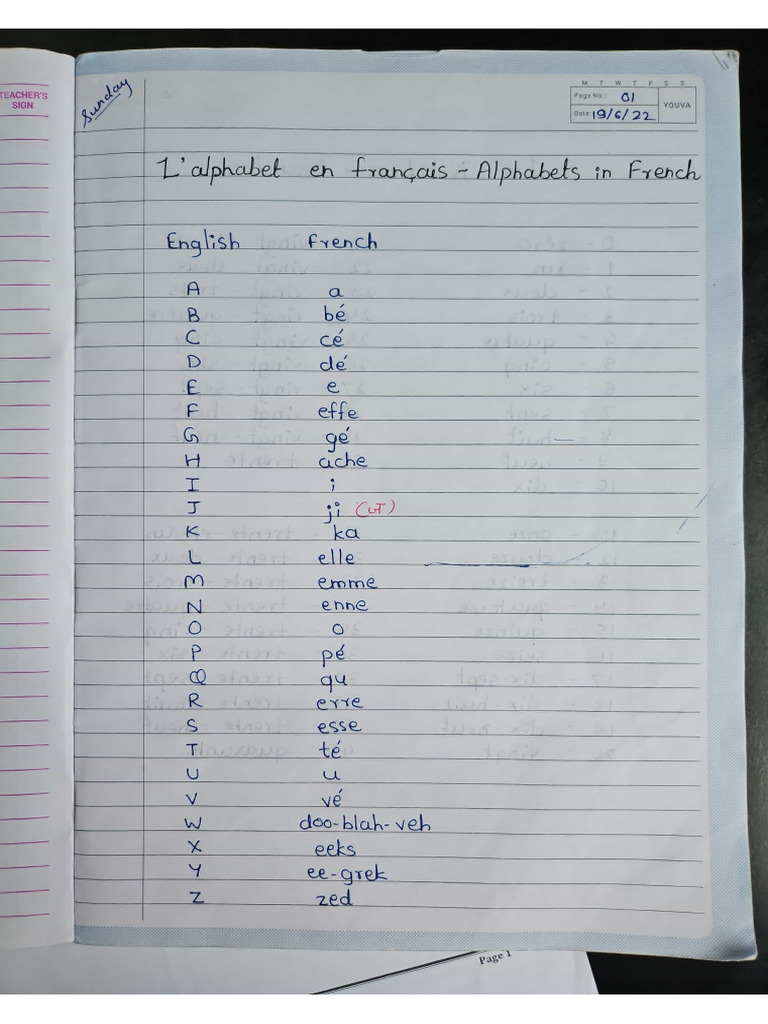 TEACHER'S
SIGN
Sunday
M T W T F S S
Page No.: 01
YOUVA
Date: 19/6/22
L'alphabet en français - Alphabets in French
English French
A a
B bé
C cé
D dé
E e
F effe
G gé
H ache
I i
J ji
K ka
L elle
M emme
N enne
O o
P pé
Q qu
R erre
S esse
T té
U u
V vé
W doo-blah-veh
X eeks
Y ee-grek
Z zed
Page 1